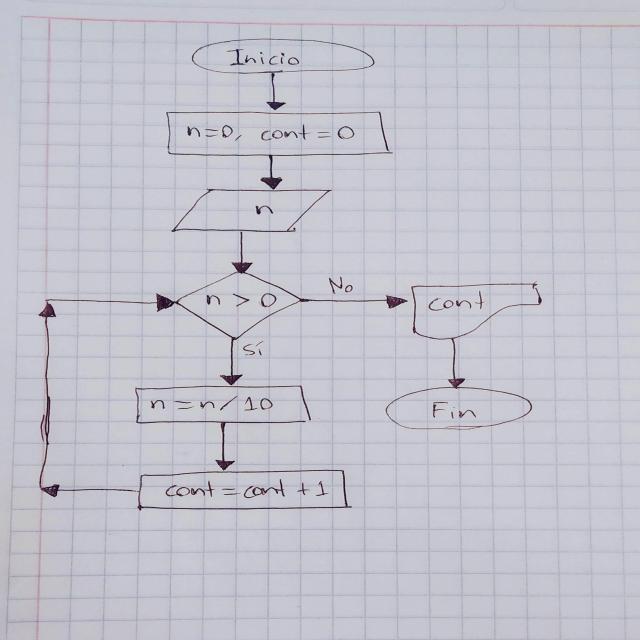 Inicio
n=0, cont=0
n
n > 0
No
cont
Sí
n=n/10
Fin
cont=cont+1